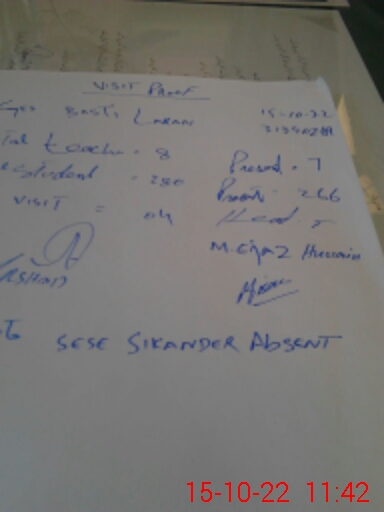 VISIT PROOF
BASTI LARAN 15-10-22
teacher = 8 Present = 7
Student = 280 Present = 266
VISIT = 04 Head =
M. Eijaz Hussain
ARSHAD
SESE SIKANDER ABSENT
15-10-22 11:42